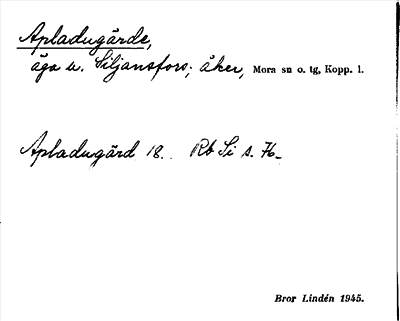 Apladugärde,
äga u. Siljansfors; åker, Mora sn o. tg, Kopp. l.
Apladugärd 18.. Rb Si s. 76.
Bror Lindén 1945.